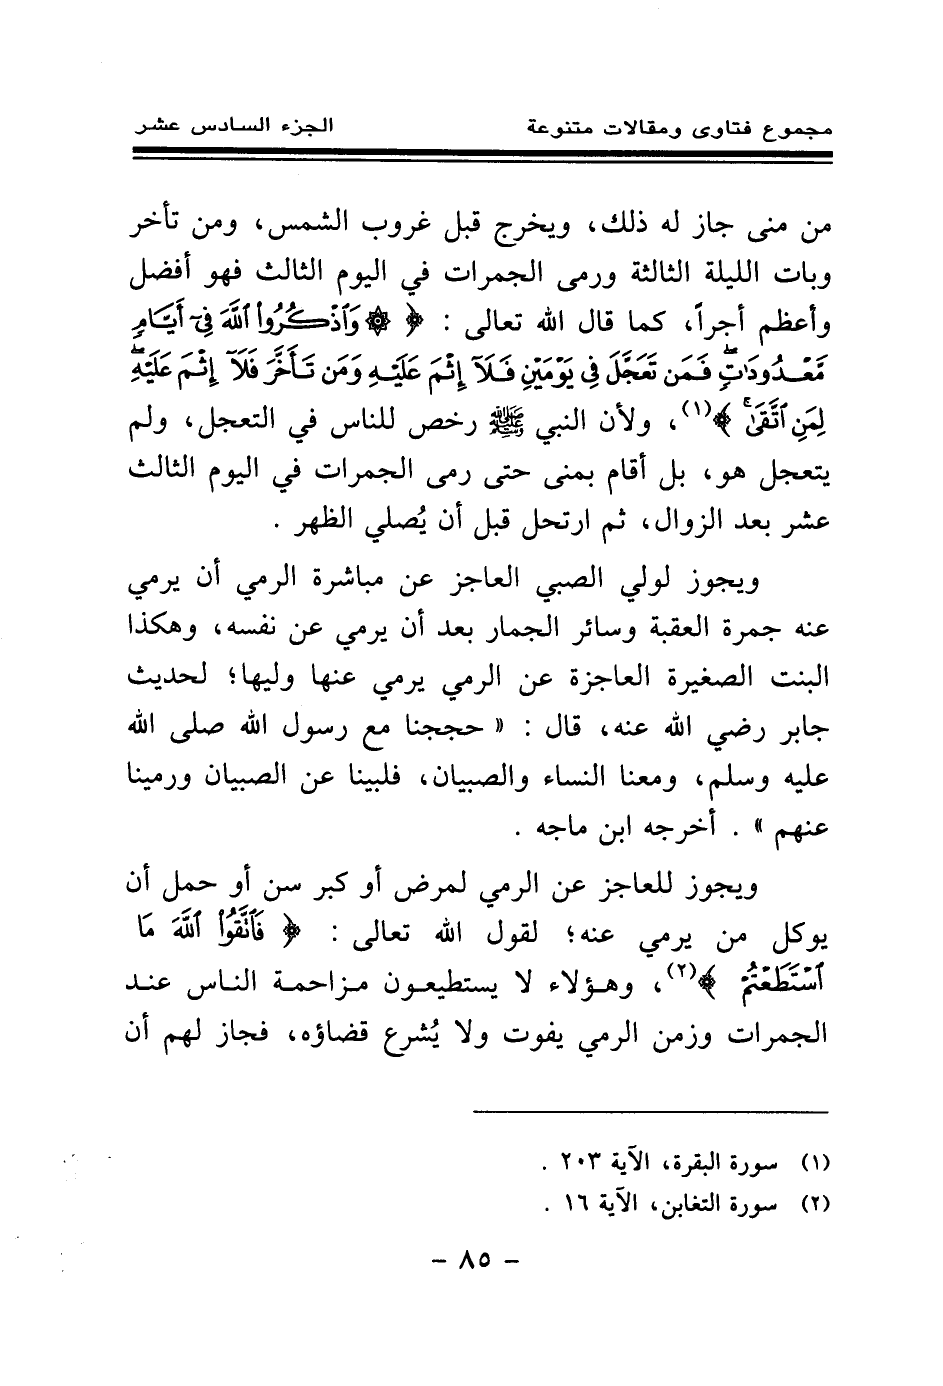 مجموع فتاوى ومقالات متنوعة الجزء السادس عشر
من منى جاز له ذلك، ويخرج قبل غروب الشمس، ومن تأخر
وبات الليلة الثالثة ورمى الجمرات في اليوم الثالث فهو أفضل
وأعظم أجراً، كما قال الله تعالى : ﴿ ۞ وَٱذْكُرُوا۟ ٱللَّهَ فِىٓ أَيَّامٍ
مَّعْدُودَٰتٍ ۚ فَمَن تَعَجَّلَ فِى يَوْمَيْنِ فَلَآ إِثْمَ عَلَيْهِ وَمَن تَأَخَّرَ فَلَآ إِثْمَ عَلَيْهِ ۚ
لِمَنِ ٱتَّقَىٰ ﴾(١)، ولأن النبي ﷺ رخص للناس في التعجل، ولم
يتعجل هو، بل أقام بمنى حتى رمى الجمرات في اليوم الثالث
عشر بعد الزوال، ثم ارتحل قبل أن يُصلي الظهر .
ويجوز لولي الصبي العاجز عن مباشرة الرمي أن يرمي
عنه جمرة العقبة وسائر الجمار بعد أن يرمي عن نفسه، وهكذا
البنت الصغيرة العاجزة عن الرمي يرمي عنها وليها؛ لحديث
جابر رضي الله عنه، قال : « حججنا مع رسول الله صلى الله
عليه وسلم، ومعنا النساء والصبيان، فلبينا عن الصبيان ورمينا
عنهم » . أخرجه ابن ماجه .
ويجوز للعاجز عن الرمي لمرض أو كبر سن أو حمل أن
يوكل من يرمي عنه؛ لقول الله تعالى : ﴿ فَٱتَّقُوا۟ ٱللَّهَ مَا
ٱسْتَطَعْتُمْ ﴾(٢)، وهؤلاء لا يستطيعون مزاحمة الناس عند
الجمرات وزمن الرمي يفوت ولا يُشرع قضاؤه، فجاز لهم أن
(١) سورة البقرة، الآية ٢٠٣ .
(٢) سورة التغابن، الآية ١٦ .
- ٨٥ -